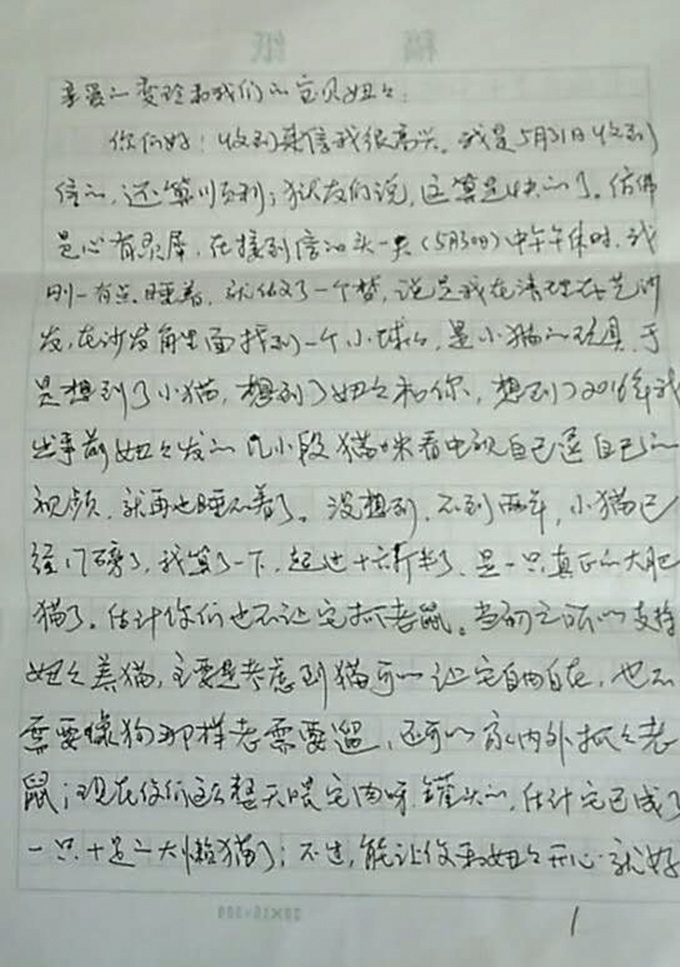 稿 纸
亲爱的雯玲和我们的宝贝妞々:
你们好!收到来信我很高兴。我是5月31日收到
信的,还算顺利;狱友们说,这算是快的了。仿佛
是心有灵犀,在接到信的头一天(5月30日)中午午休时,我
刚一有点睡着,就做了一个梦,说是我在清理布艺沙
发,在沙发角里面找到一个小球々,是小猫的玩具,于
是想到了小猫,想到了妞々和你,想到了2016年我
出事前妞々发的几小段猫咪看电视自己逗自己的
视频,就再也睡不着了。没想到,不到两年,小猫已
经17磅了,我算了一下,超过十六斤半了,是一只真正的大肥
猫了。估计你们也不让它抓老鼠。当初之所以支持
妞々养猫,主要是考虑到猫可以让它自由自在,也不
需要像狗那样老需要遛,还可以家内外抓々老
鼠;现在你们这么整天喂它肉呀、罐头的,估计它已成了
一只十足的大懒猫了;不过,能让你和妞々开心就好
20×15=300
1